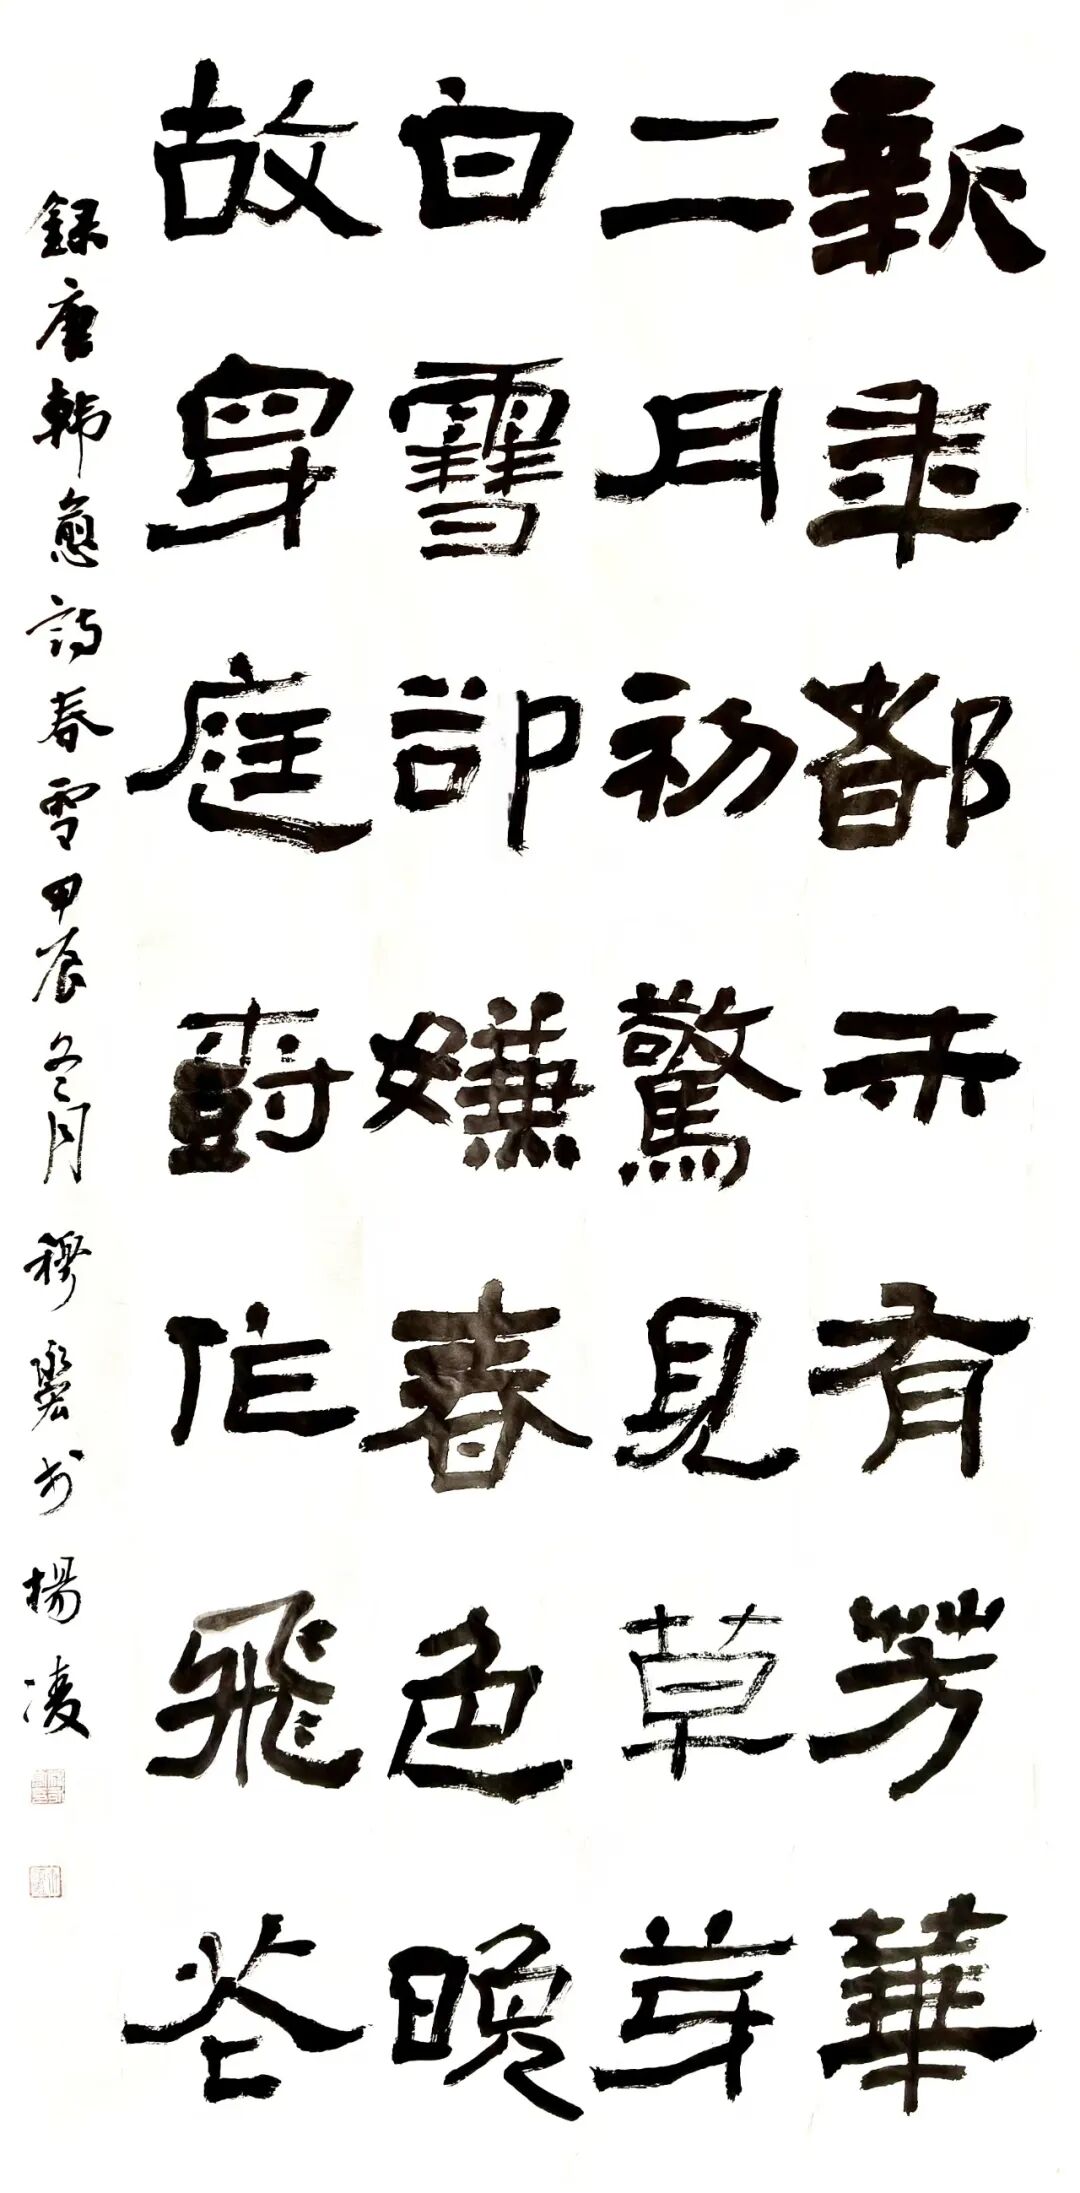 新年都未有芳華
二月初驚見草芽
白雪卻嫌春色晚
故穿庭樹作飛花
録唐韓愈詩春雪甲辰冬月穆於楊凌